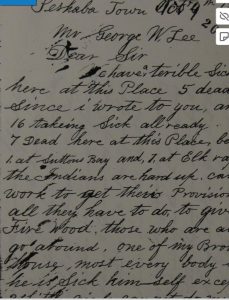 Peshaba Town
Mr. George W. Lee
Dear Sir
I have terible Sick
here at this Place 5 dead
Since i wrote to you, an
16 taking Sick allready.
7 Dead here at this Place, be
1. at Sutton Bay and, 1. at Elk ra
the Indians are hard up. Can
work to get their Provision
all they have to do, to giv
Fire Wood. those who are a
go around, one of my Bro
House, most every body
he is sick him self exce